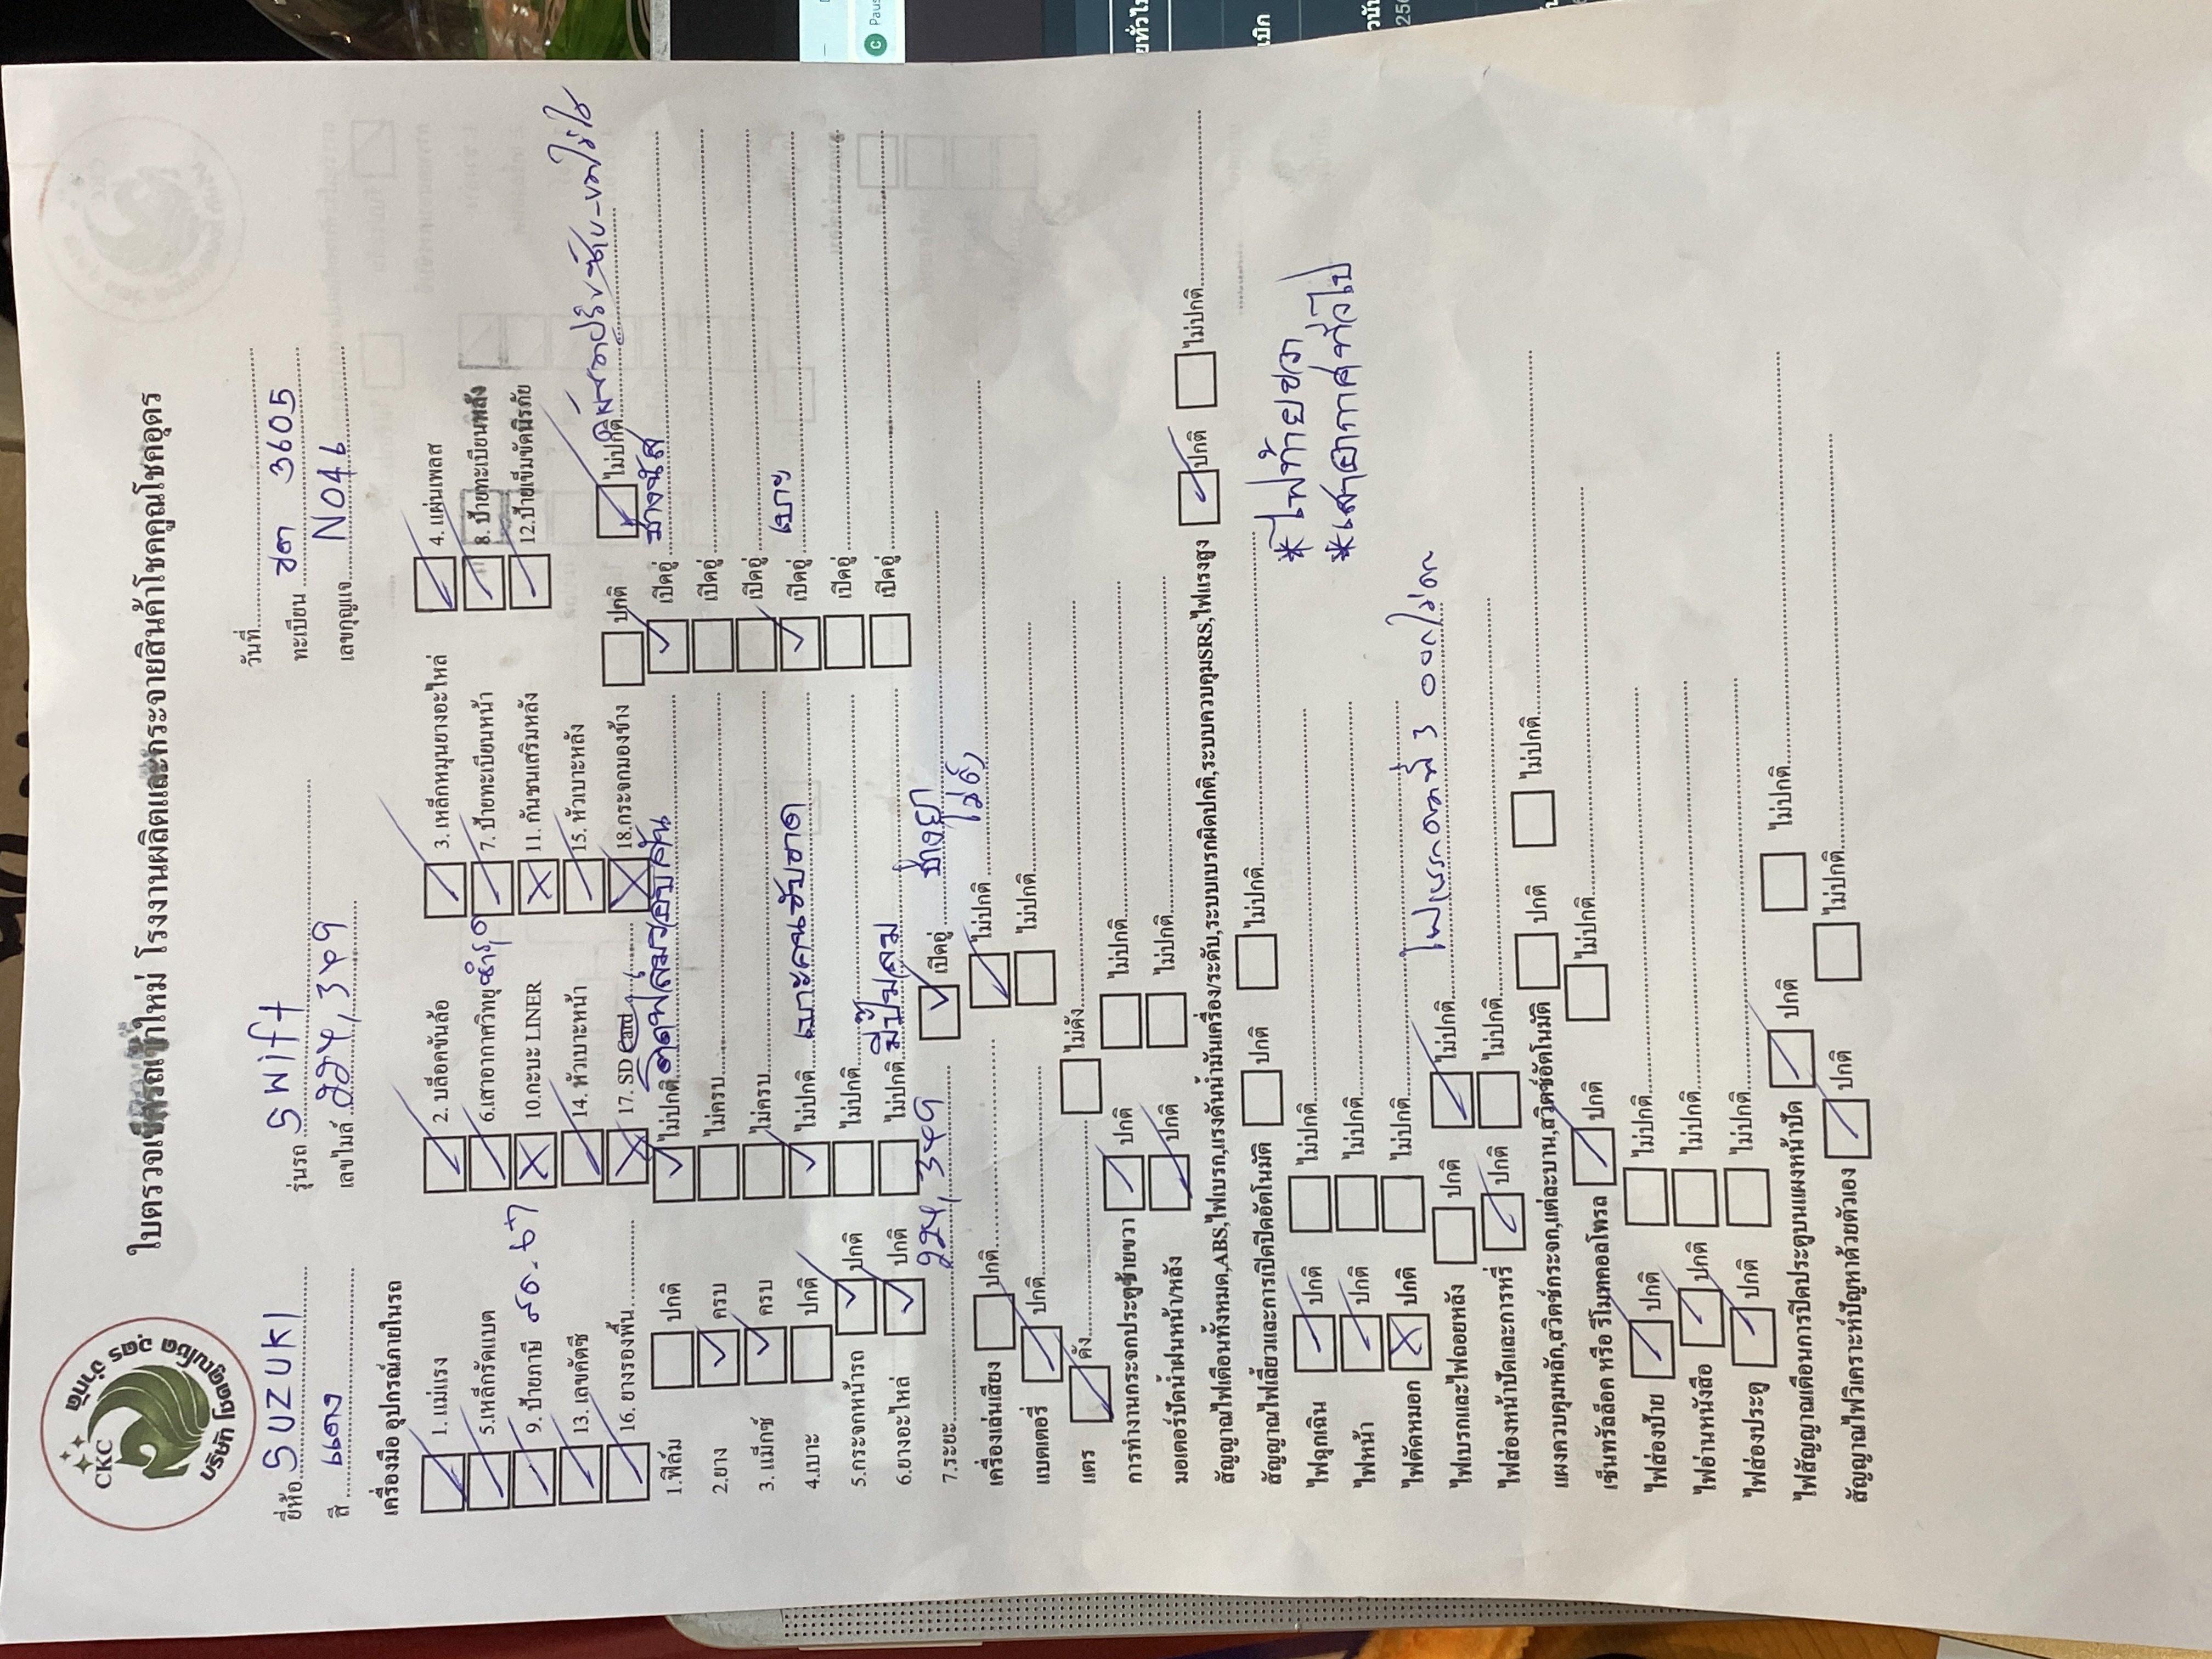 บริษัท โชคคูณโชค อุดร จำกัด
CKC
ใบตรวจเช็ครถเข้าใหม่ โรงงานผลิตและกระจายสินค้าโชคคูณโชคอุดร
วันที่
ยี่ห้อ SUZUKI รุ่นรถ Swift ทะเบียน ขต 3605
สี แดง เลขไมล์ 224,349 เลขกุญแจ N046
เครื่องมือ อุปกรณ์ภายในรถ
1. แม่แรง 2. บล็อคขันล้อ 3. เหล็กหมุนยางอะไหล่ 4. แผ่นเพลส
5.เหล็กรัดแบต 6.เสาอากาศวิทยุ ชำรุด 7. ป้ายทะเบียนหน้า 8. ป้ายทะเบียนหลัง
9. ป้ายภาษี 10.กะบะ LINER 11. กันชนเสริมหลัง 12.ป้ายเข็มขัดนิรภัย
13. เลขคัตซี 14. หัวเบาะหน้า 15. หัวเบาะหลัง
16. ยางรองพื้น 17. SD Card 18.กระจกมองข้าง ปกติ ไม่ปกติ
1.ฟิล์ม ปกติ ไม่ปกติ ติดฟิล์มรอบคัน เปิดอู่
2.ยาง ครบ ไม่ครบ เปิดอู่
3. แม็กซ์ ครบ ไม่ครบ เปิดอู่
4.เบาะ ปกติ ไม่ปกติ เบาะคนขับขาด เปิดอู่ เบาะ
5.กระจกหน้ารถ ปกติ ไม่ปกติ เปิดอู่
6.ยางอะไหล่ ปกติ ไม่ปกติ มีปั๊มลม เปิดอู่
7.ระยะ 224,349 เปิดอู่
เครื่องเล่นเสียง ปกติ ไม่ปกติ
แบตเตอรี่ ปกติ ไม่ปกติ
แตร ดัง ไม่ดัง
การทำงานกระจกประตูซ้ายขวา ปกติ ไม่ปกติ
มอเตอร์ปัดน้ำฝนหน้า/หลัง ปกติ ไม่ปกติ
สัญญาณไฟเตือนทั้งหมด,ABS,ไฟเบรก,แรงดันน้ำมันเครื่อง/ระดับ,ระบบเบรกผิดปกติ,ระบบควบคุมSRS,ไฟแรงสูง ปกติ ไม่ปกติ
สัญญาณไฟเลี้ยวและการเปิดปิดอัตโนมัติ ปกติ ไม่ปกติ
ไฟฉุกเฉิน ปกติ ไม่ปกติ *ไฟท้ายขวา
ไฟหน้า ปกติ ไม่ปกติ *เสาอากาศทั่วไป
ไฟตัดหมอก ปกติ ไม่ปกติ
ไฟเบรกและไฟถอยหลัง ปกติ ไม่ปกติ ไฟเบรคดวงที่ 3
ไฟส่องหน้าปัดและการหรี่ ปกติ ไม่ปกติ
แผงควบคุมหลัก,สวิตช์กระจก,แต่ละบาน,สวิตช์อัตโนมัติ ปกติ ไม่ปกติ
เซ็นทรัลล็อค หรือ รีโมทคอลโทรล ปกติ ไม่ปกติ
ไฟส่องป้าย ปกติ ไม่ปกติ
ไฟอ่านหนังสือ ปกติ ไม่ปกติ
ไฟส่องประตู ปกติ ไม่ปกติ
ไฟสัญญาณเตือนการปิดประตูบนแผงหน้าปัด ปกติ ไม่ปกติ
สัญญาณไฟวิเคราะห์ปัญหาด้วยตัวเอง ปกติ ไม่ปกติ